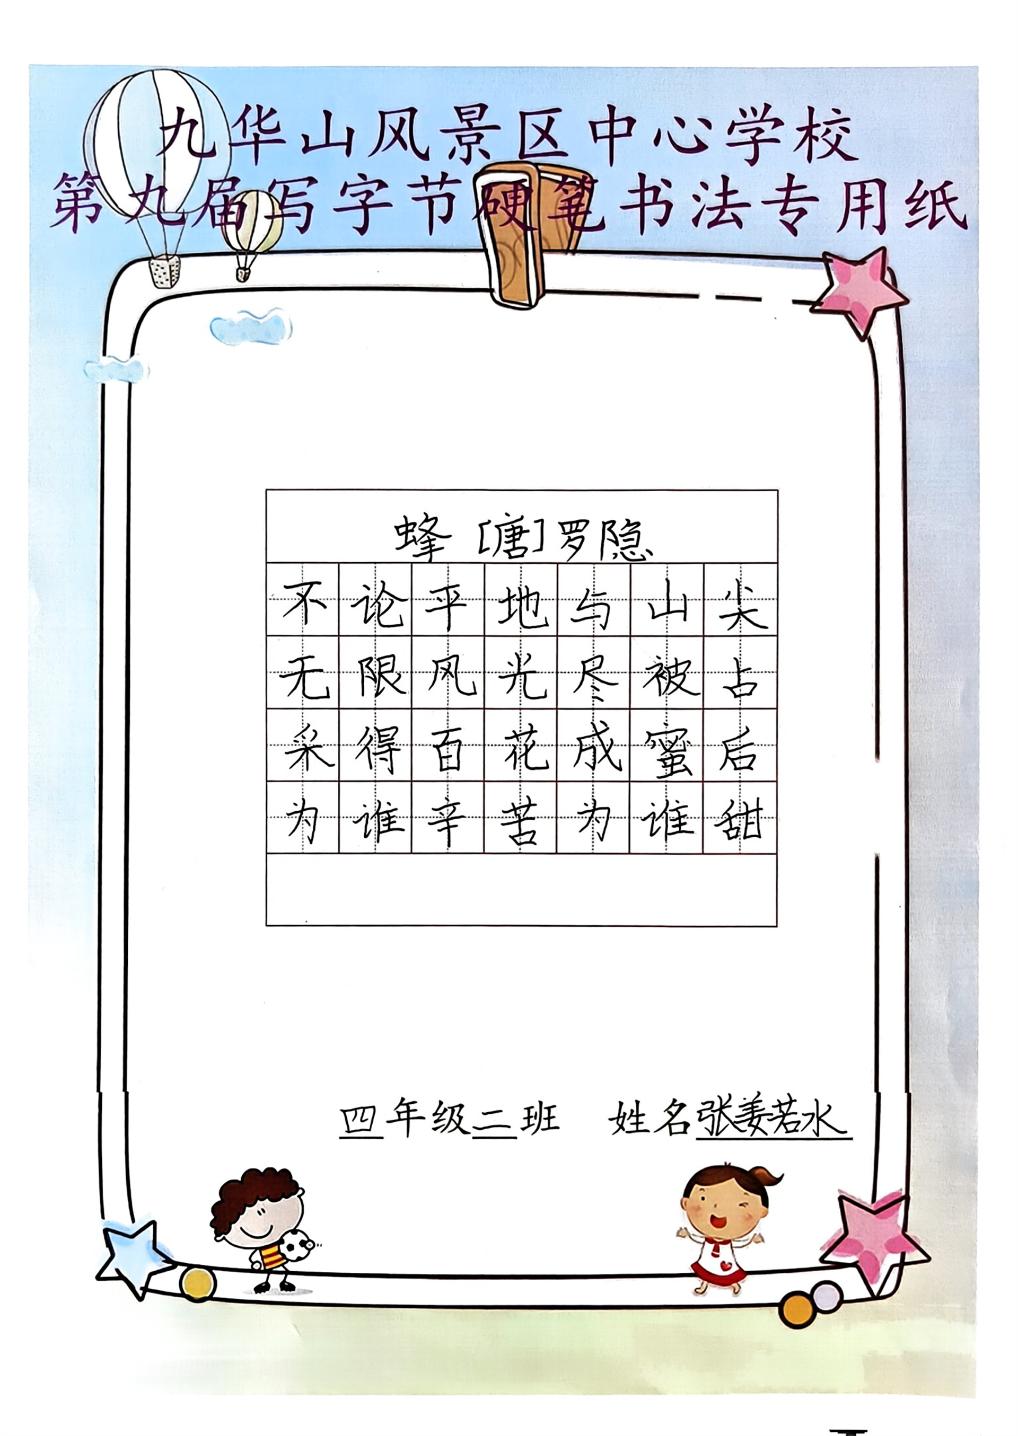 九华山风景区中心学校
第九届写字节硬笔书法专用纸
蜂 [唐]罗隐
不论平地与山尖
无限风光尽被占
采得百花成蜜后
为谁辛苦为谁甜
四年级二班 姓名张姜若水